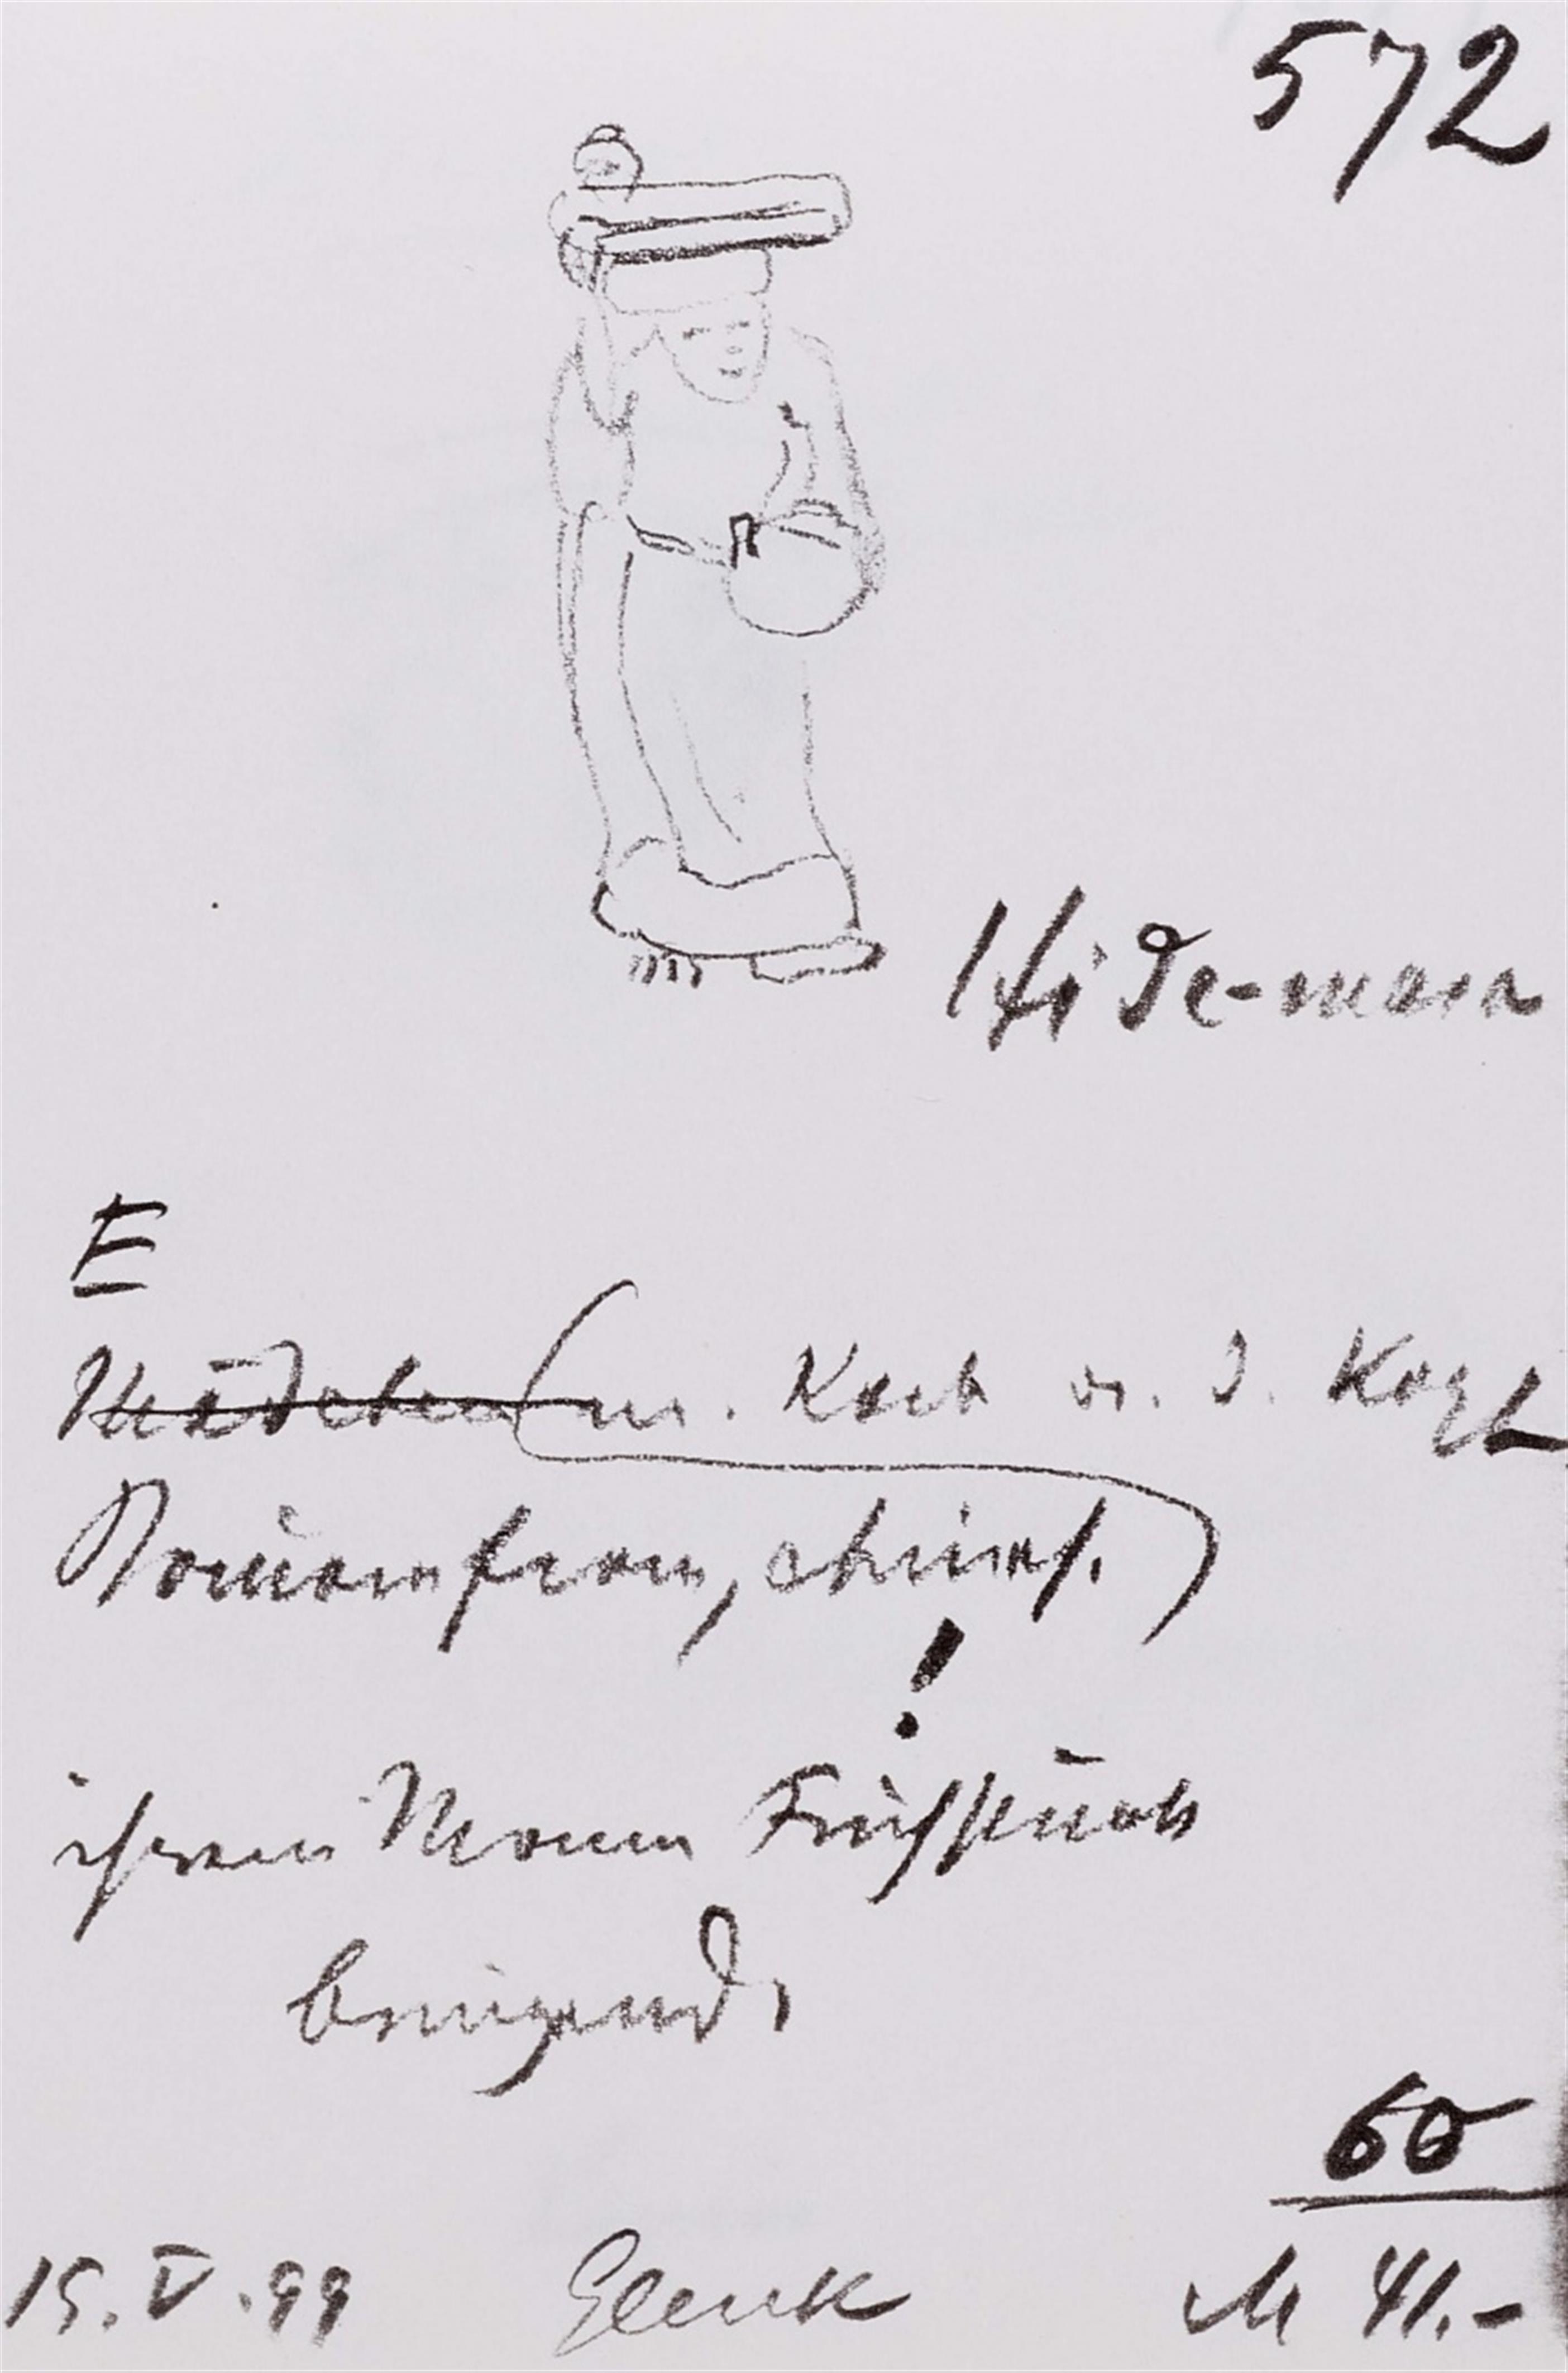 572
Hide-masa
E
Mädchen (m. Korb a. d. Kopf
Bauernfrau, chines.)
!
ihrem Mann Frühstück
bringend,
60
15. V. 99 Glenk M 41.-